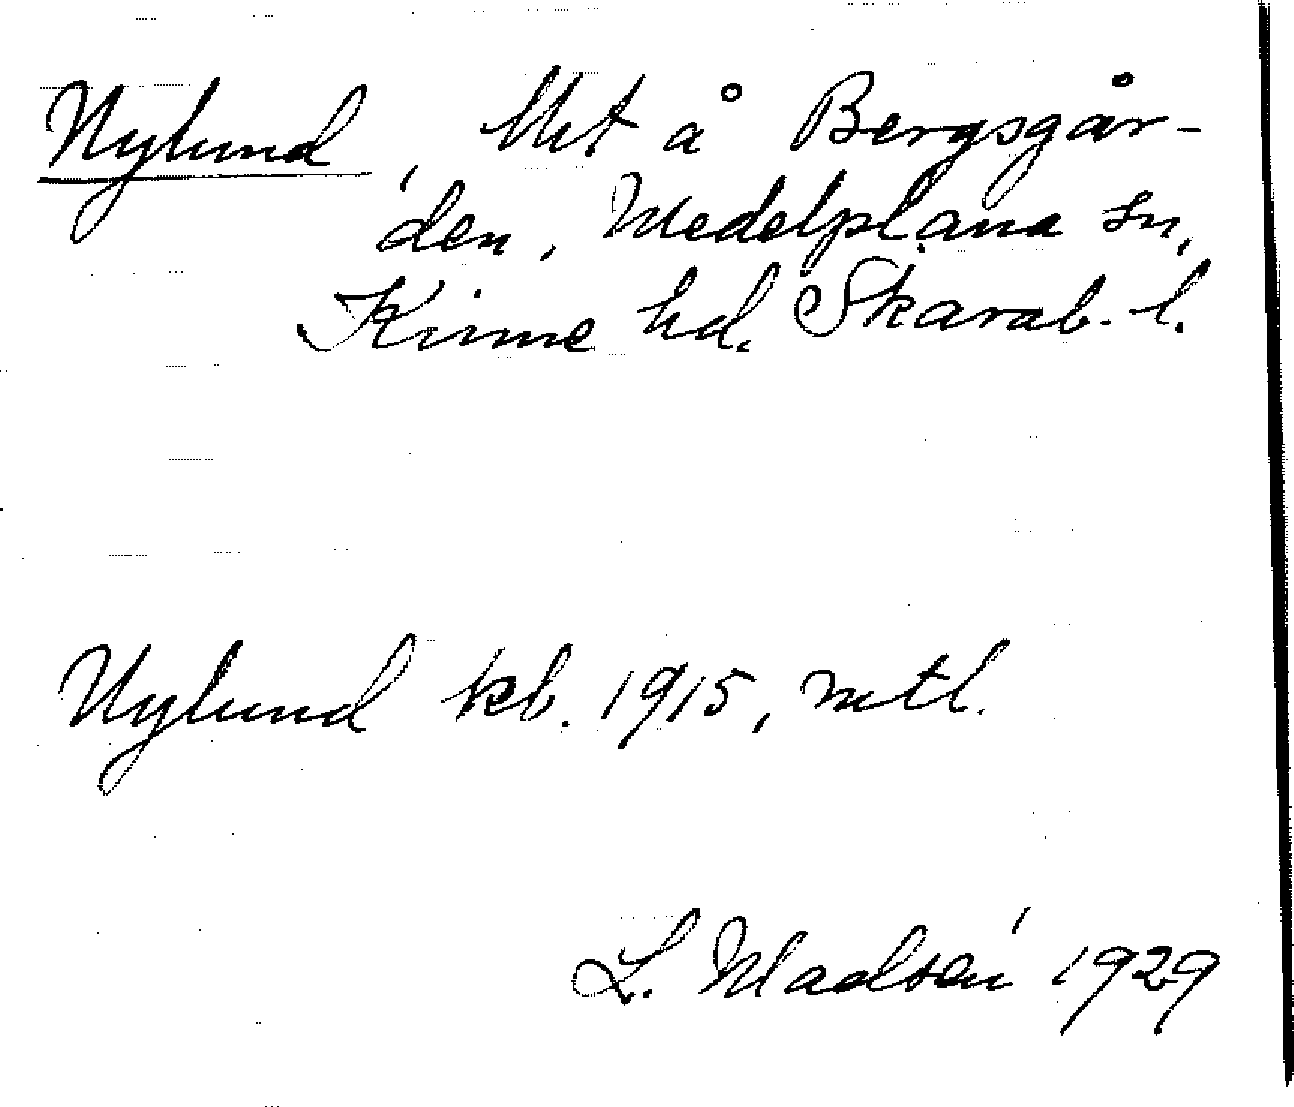 Nylund, Utt å Bergsgår-
den, Medelplana sn,
Kinne hd. Skarab. l.
Nylund kb. 1915, mtl.
L. Madsén 1929